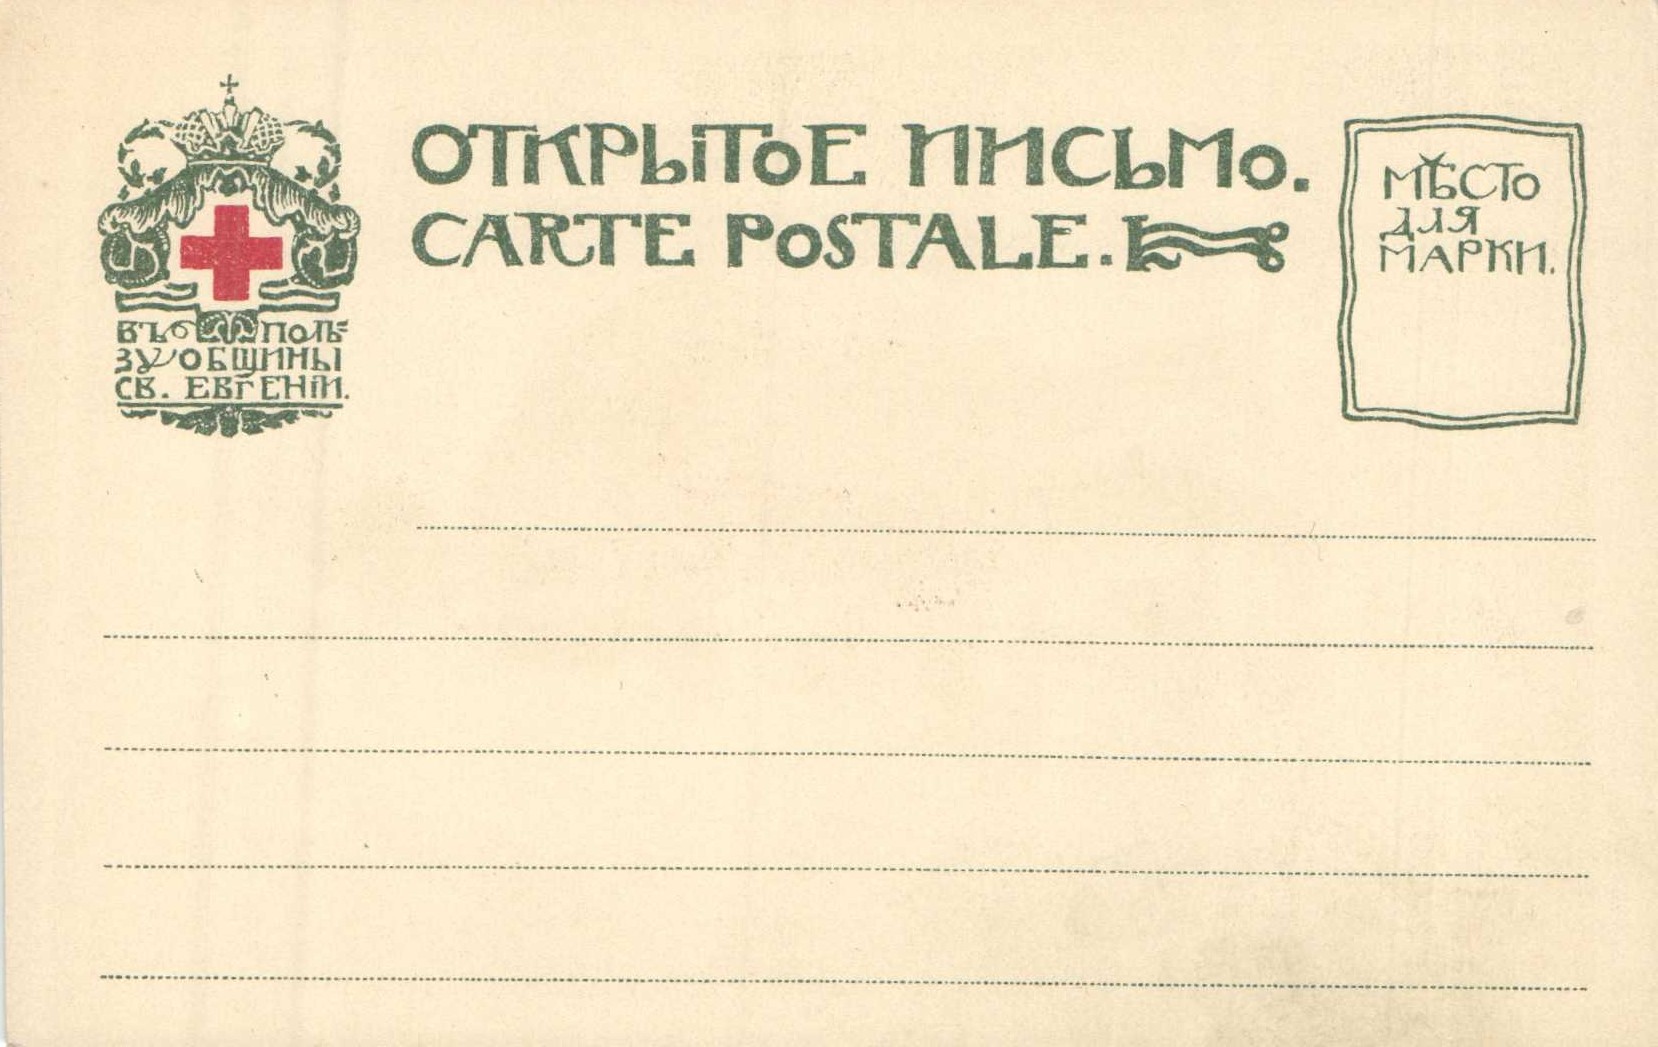 ОТКРЫТОЕ ПИСЬМО.
CARTE POSTALE.
ВЪ ПОЛЬ=
ЗУ ОБЩИНЫ
СВ. ЕВГЕНІИ.
МѢСТО
ДЛЯ
МАРКИ.